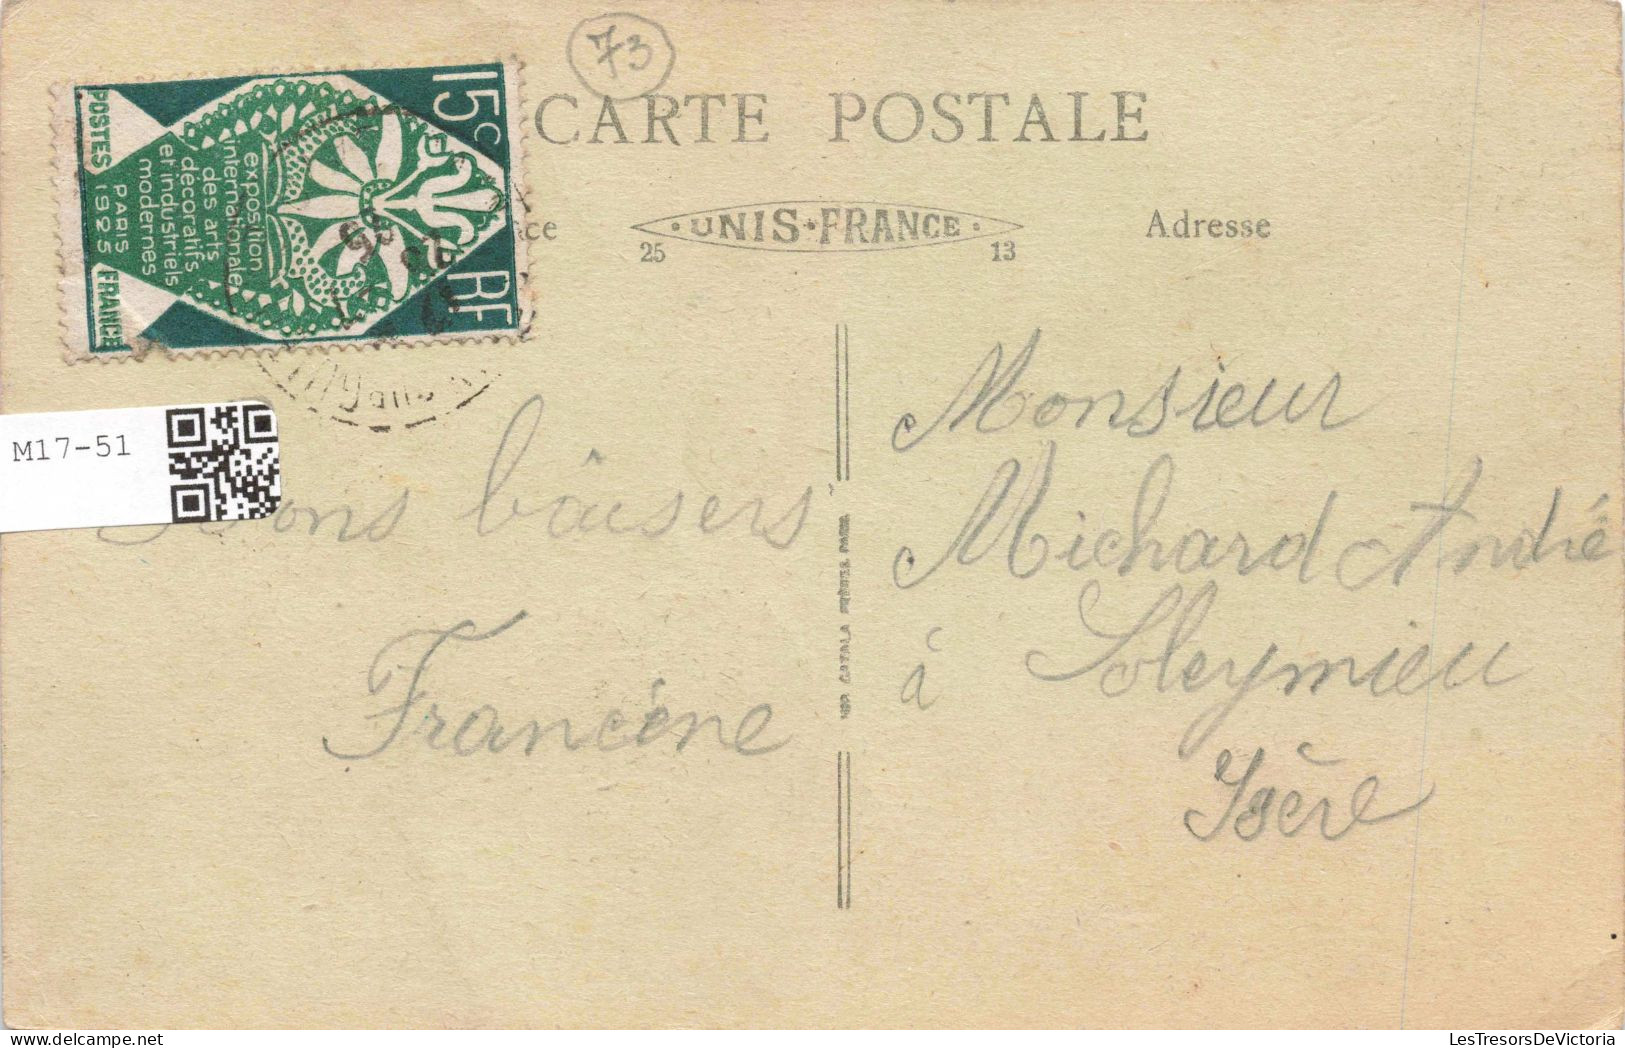 73
CARTE POSTALE
15c
POSTES
FRANCE
exposition
internationale
des arts
décoratifs
et industriels
modernes
PARIS
1925
RF
ce
UNIS FRANCE
25
13
Adresse
M17-51
Bons bâisers
Francine
Monsieur
Michard André
à Soleymieu
Isère
LesTresorsDeVictoria.com